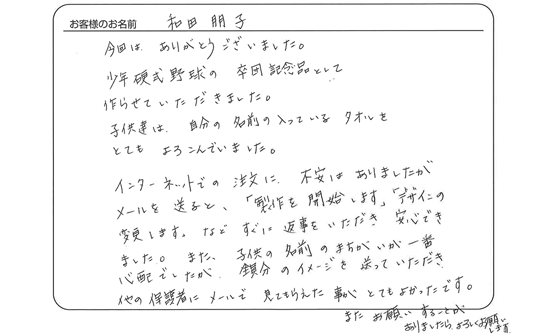 お客様のお名前 和田 朋子
今回は ありがとうございました。
少年硬式野球の 卒団記念品として
作らせていただきました。
子供達は、自分の名前の入っている タオルを
とても よろこんでいました。
インターネットでの 注文に、不安は ありましたが
メールを 送ると、「製作を 開始します」「デザインの
変更します。など すぐに 返事を いただき 安心でき
ました。また、子供の 名前の まちがいが 一番
心配でしたが、全員分の イメージを 送っていただき
他の 保護者に メールで 見てもらえた 事が とてもよかったです。
また お願い することが
ありましたら、よろしくお願い
します